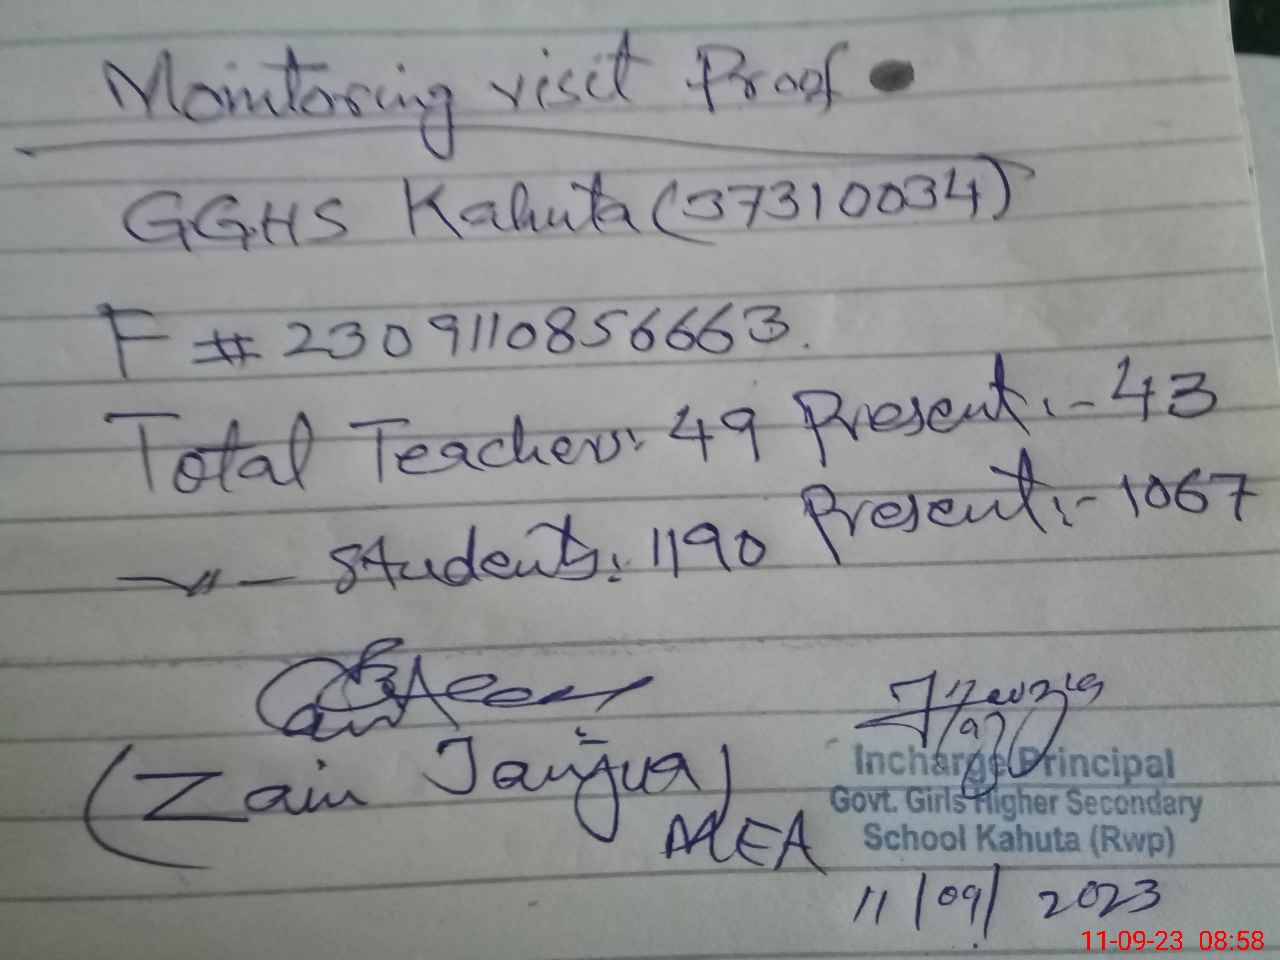 Monitoring visit Proof
GGHS Kahuta (37310034)
F # 2309110856663.
Total Teacher: 49 Present:- 43
—〃— Students: 1190 Present:- 1067
(Zain Janjua)
MEA
Incharge Principal
Govt. Girls Higher Secondary
School Kahuta (Rwp)
11/09/2023
11-09-23 08:58